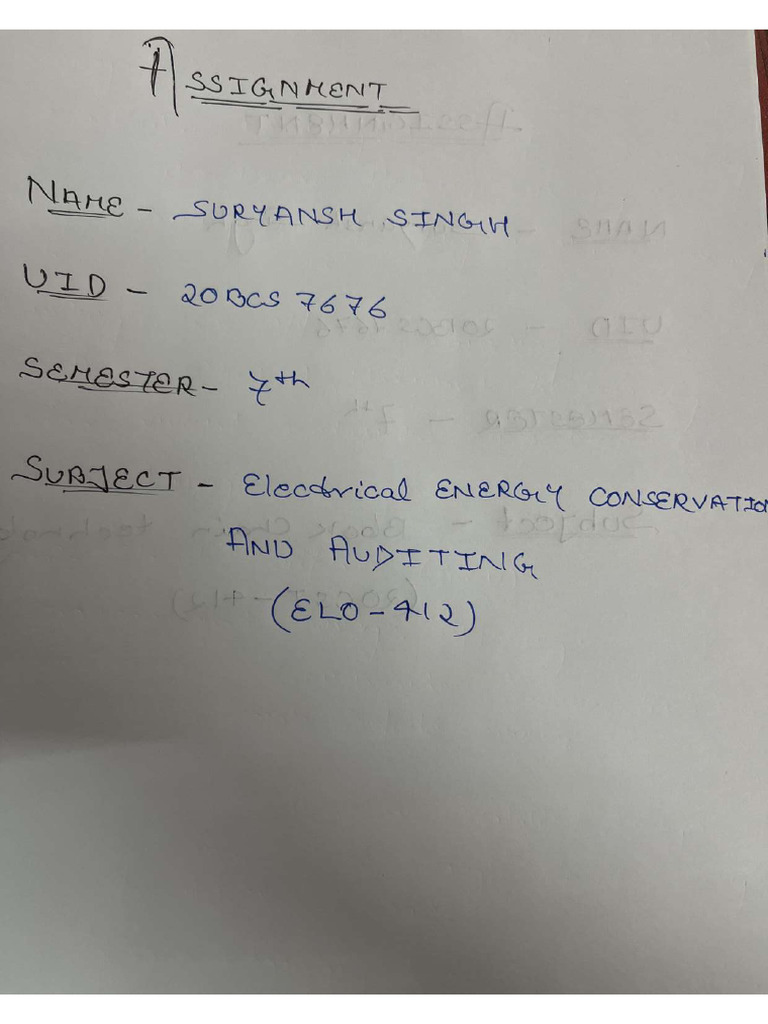 ASSIGNMENT
NAME - SURYANSH SINGH
UID - 20BCS 7676
SEMESTER - 7th
SUBJECT - Electrical ENERGY CONSERVATION
AND AUDITING
(ELO-412)